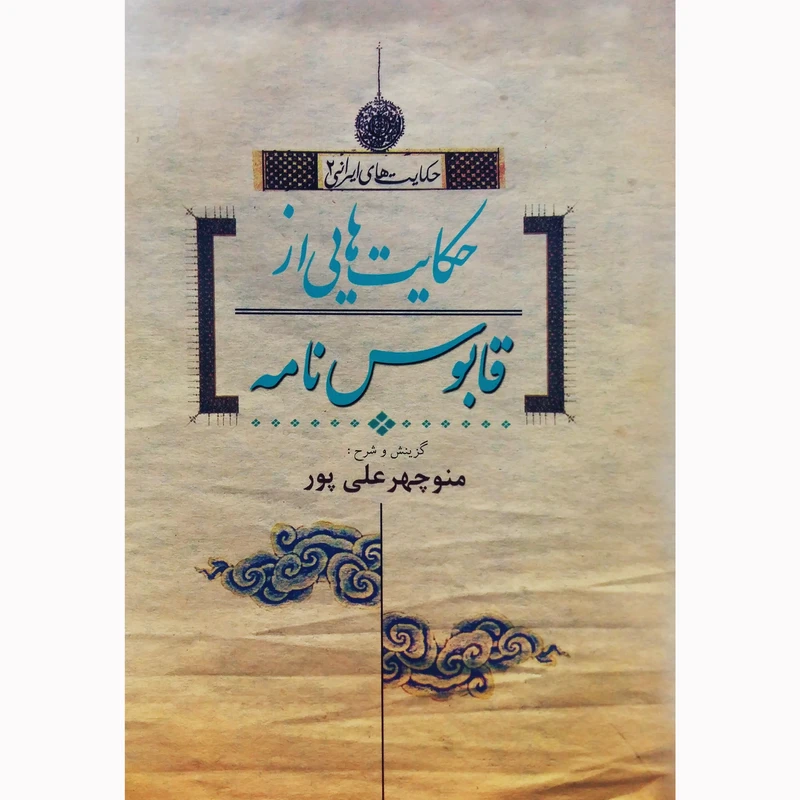 حکایت‌های ایرانی ۲
حکایت‌هایی از
قابوس نامه
گزینش و شرح :
منوچهر علی پور